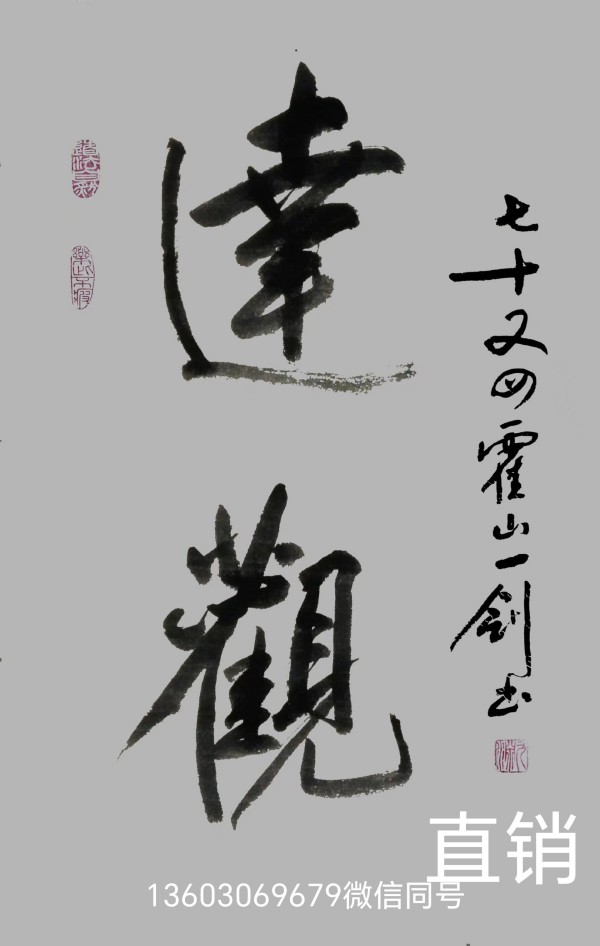 達觀
七十又四霍山一剑书
直销
13603069679微信同号